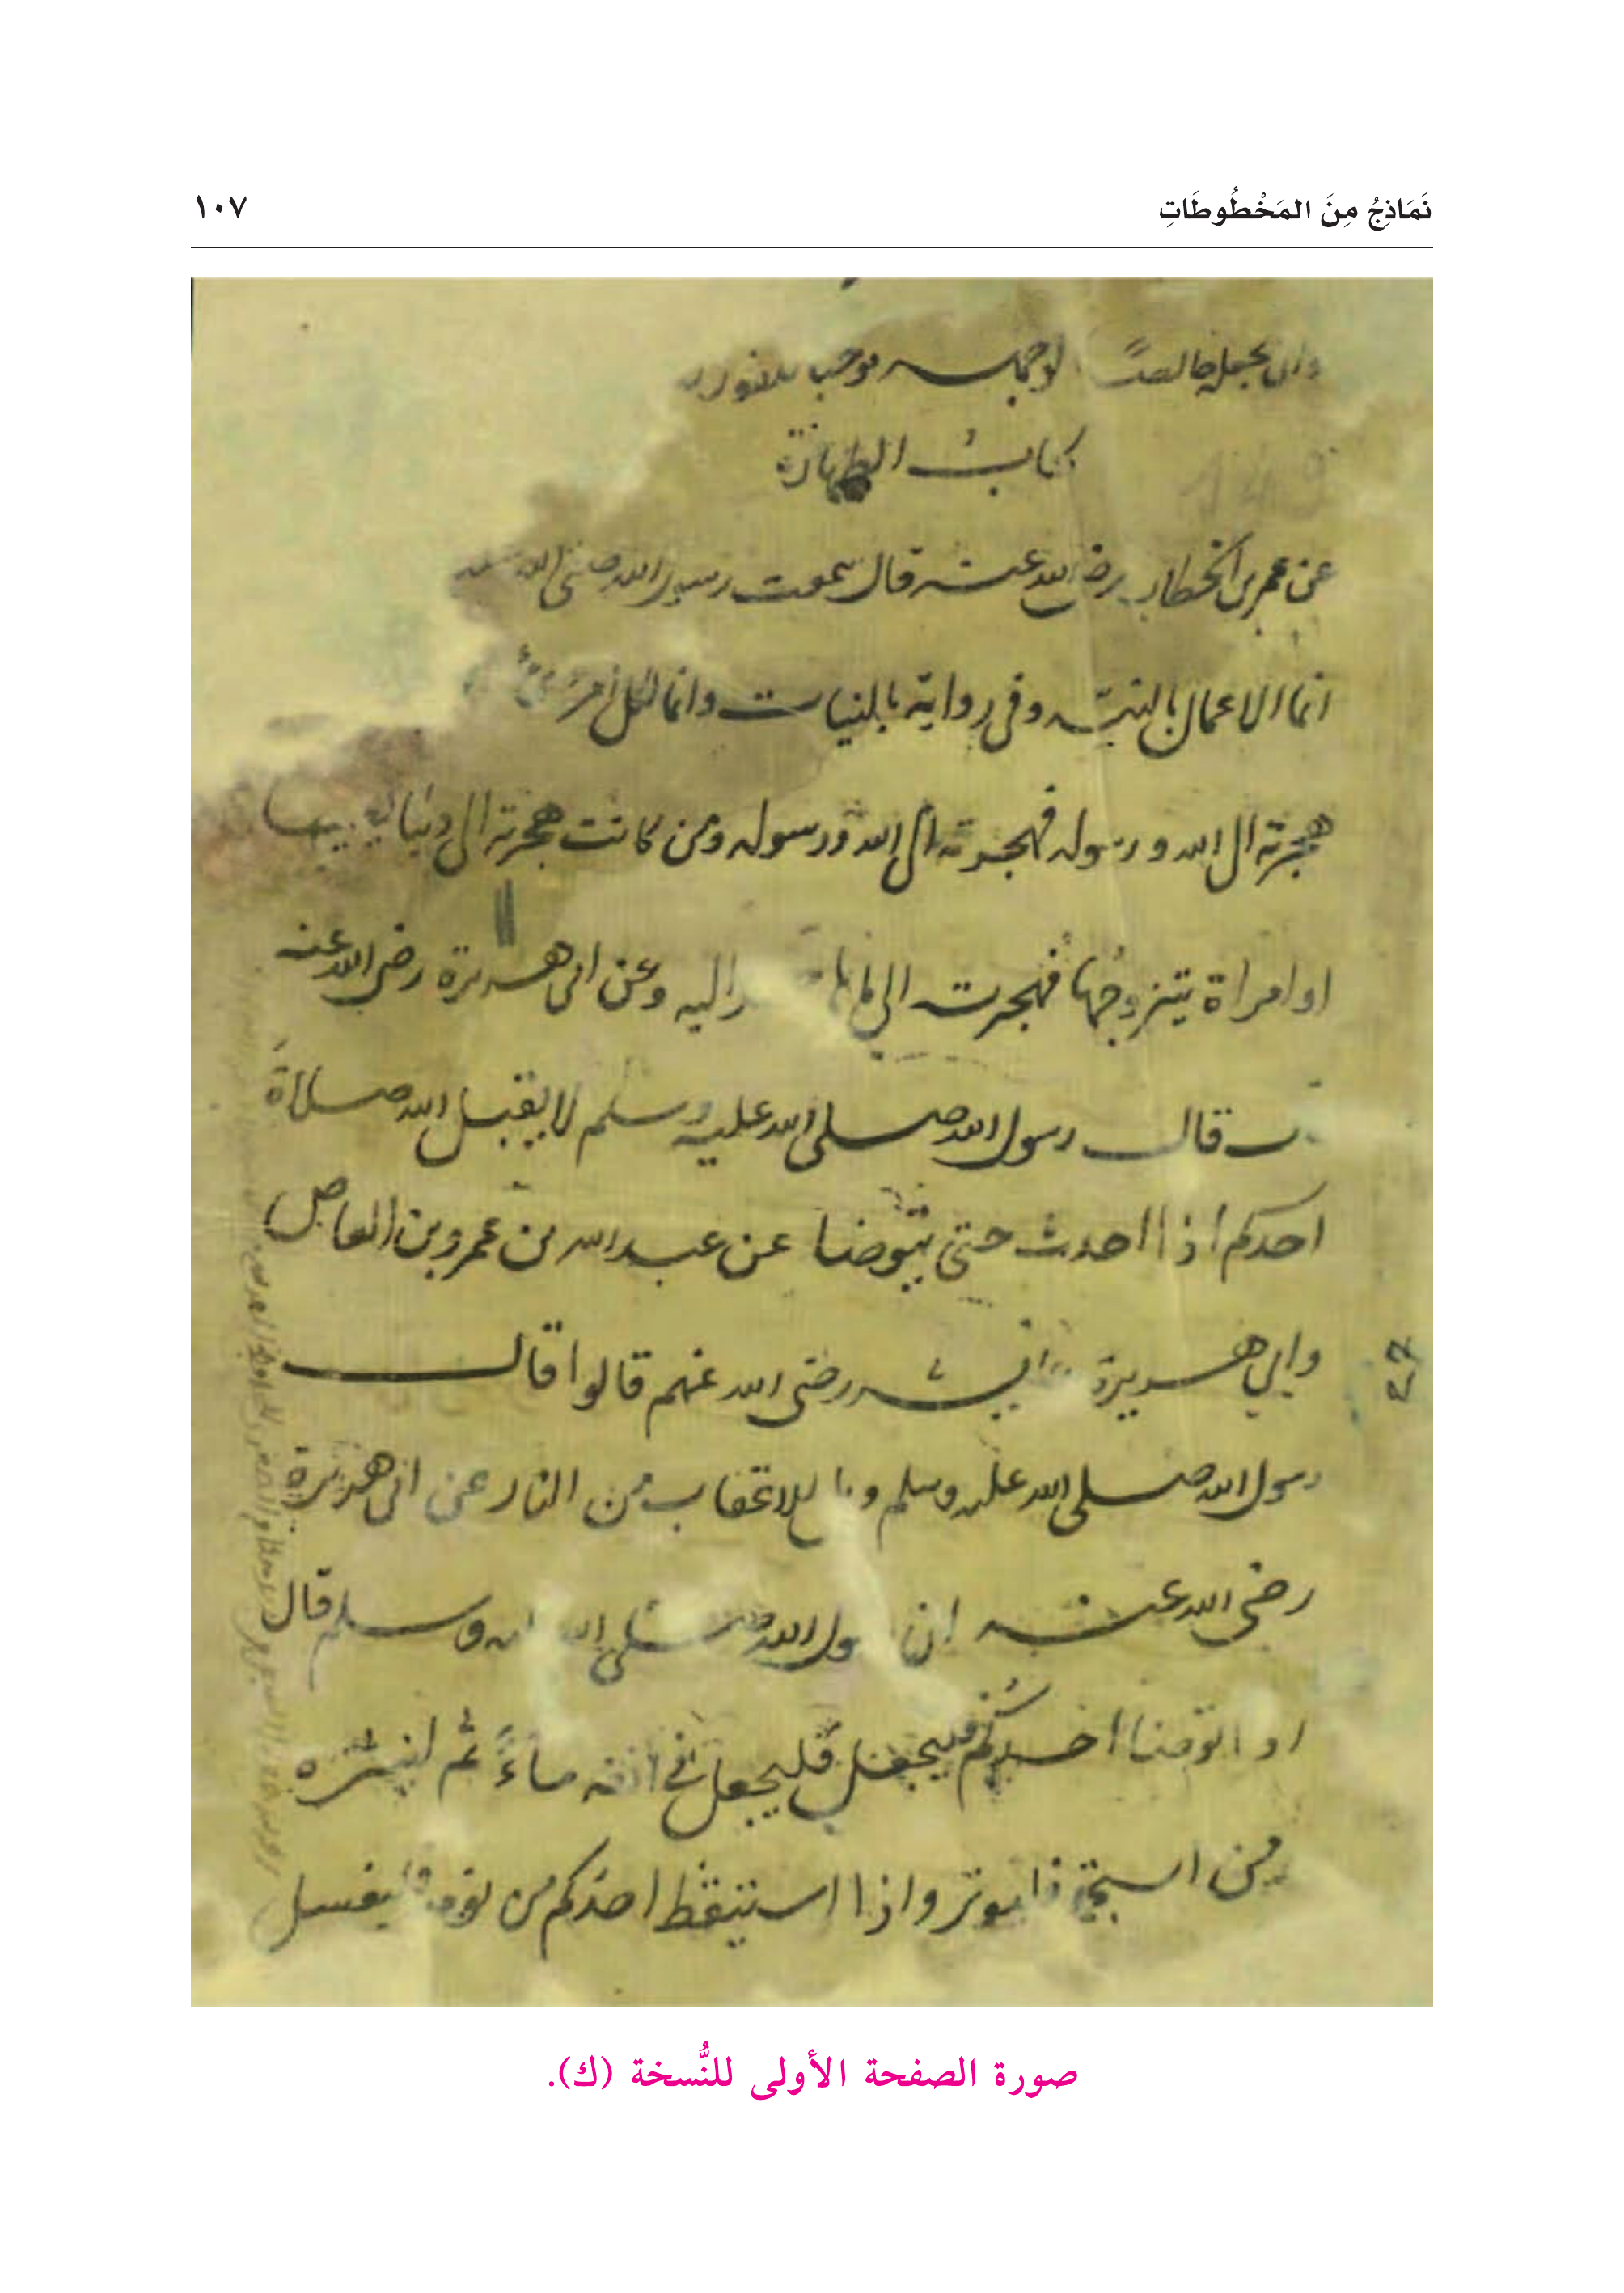 نَمَاذِجُ مِنَ المَخْطُوطَاتِ
١٠٧
وان يجعله خالصًا لوجهه موجب للفوز
كتابُ الطهارة
عن عمر بن الخطاب رضي الله عنه قال سمعت رسول الله صلى الله
انما الاعمال بالنيّه وفي رواية بالنيات وانما لكل امرئ
هجرته الى الله ورسوله فهجرته الى الله ورسوله ومن كانت هجرته الى دنيا يصيبها
او امراة يتزوجُها فهجرت الى ما اليه وعن ابي هريرة رضي الله عنه
قال رسول الله صلى الله عليه وسلم لا يقبل الله صلاةَ
احدكم اذا احدث حتى يتوضا عن عبد الله بن عمرو بن العاص
وابي هريرة رضى الله عنهم قالوا قال
رسول الله صلى الله عليه وسلم للاعقاب من النار عن ابي هريرة
رضى الله عنه ان الله صلى الله وسلم قال
توضا احدكم فليجعل فليجعل في انفه ماءً ثم لينتثره
من استجمر فليوتر واذا استيقظ احدكم من نومه فليغسل
صورة الصفحة الأولى للنُّسخة (ك).